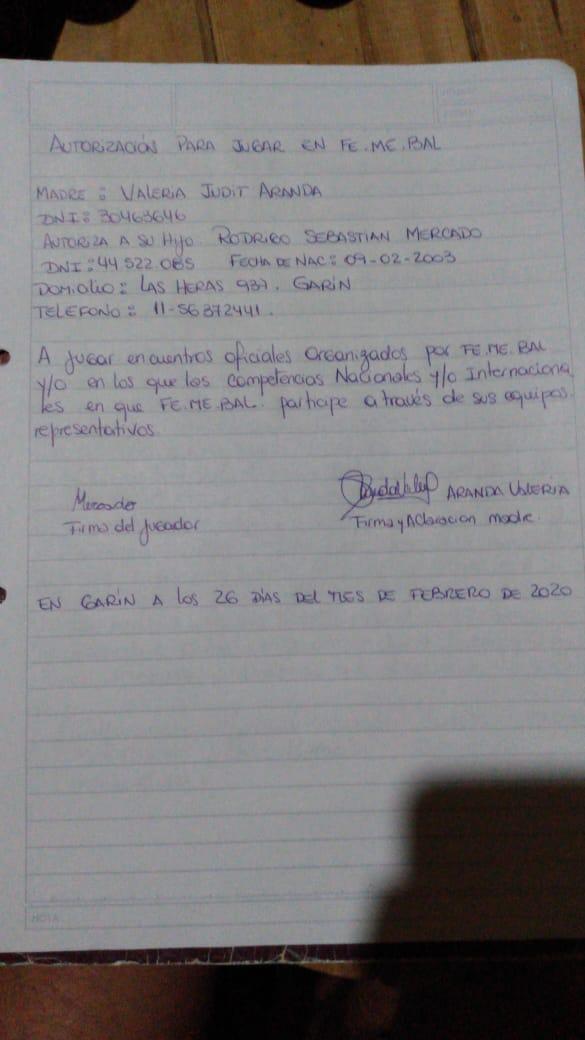 AUTORIZACIÓN PARA JUGAR EN FE.ME.BAL
MADRE: VALERIA JUDIT ARANDA
DNI: 30463646
AUTORIZA A SU HIJO RODRIGO SEBASTIAN MERCADO
DNI: 44.522.085 FECHA DE NAC: 09-02-2003
DOMICILIO: LAS HERAS 937. GARÍN
TELEFONO: 11-56372441.
A JUGAR encuentros oficiales organizados por FE.ME.BAL
y/o en los que los competencias Nacionales y/o Internaciona
les en que FE.ME.BAL. participe a través de sus equipos
representativos
Mercado
Firma del jugador
ARANDA VALERIA
Firma y Aclaración madre.
EN GARÍN A los 26 DÍAS DEL MES DE FEBRERO DE 2020
NOTA